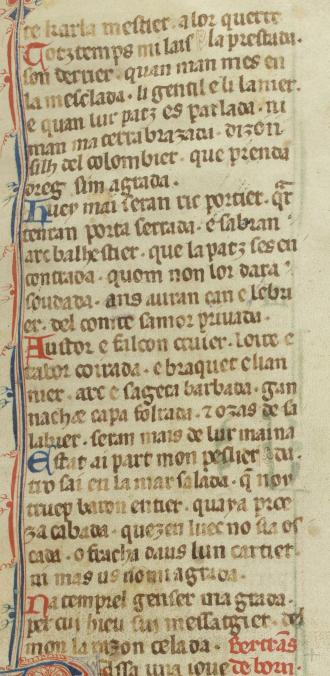 te karla mestier. a lor quette
Totztemps mi lais la prestada.
son derrier. quan man mes en
la mesclada. li gentil e li lanier.
e quan lur patz es parlada. ni
man ma terra brazada. dizon
silh del colombier. que prenda
dreg sim agrada.
Huey mai seran ric portier. qr
tenran porta serrada. e sabran
arc balhestier. que la patz ses en
contrada. quom non lor dara
soudada. ans auran can e lebri
er. del comte samor privada.
Austor e falcon cruier. e
tabor coirada. e braquet e lian
mer. arc e sageta barbada. gan
nacha e capa folrada. 7 ozas de sa
labier. seran mais de lur maina
Estat ai part mon pessier da.
tro sai en la mar salada. q̄ non
truep baron entier. quaya proe
za cabada. quezen luec no sia os
cada. o fracha daus lun cartier.
ni mas us no mi agrada.
Na tempre genser magrada.
per cui hieu sui messatgier. del
mon la razon celada. Bertrās
Assa una ioue de born.